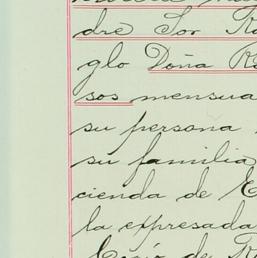 dre Sor
glo Doña
sos mensua
su persona
su familia
cienda de
la expresada
de